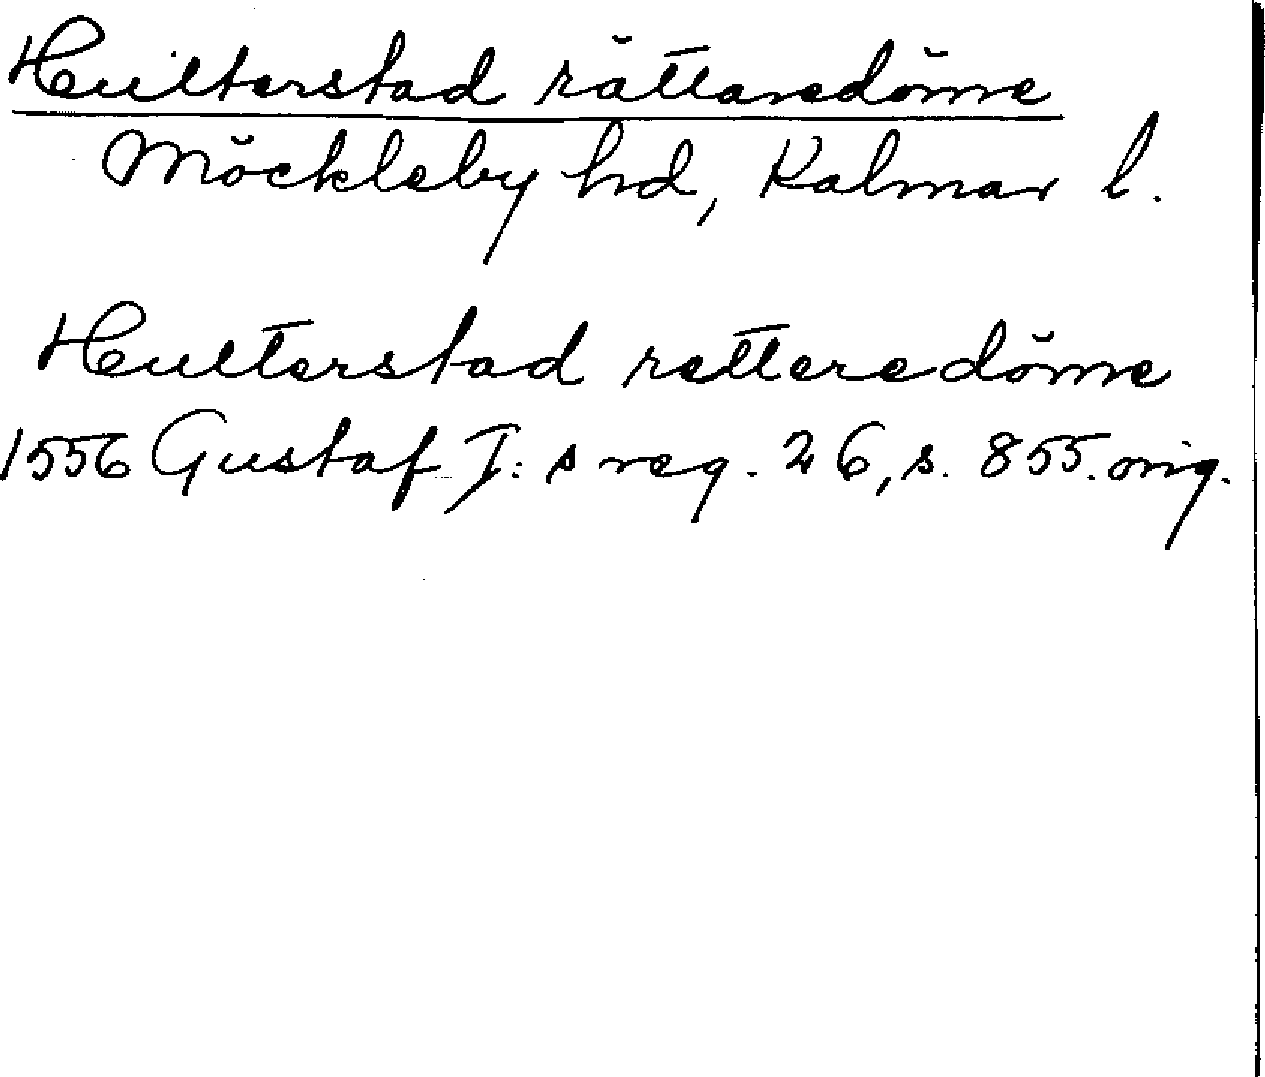 Hulterstad rättaredöme
Möckleby hd, Kalmar l.
Hulterstad rettere döme
1556 Gustaf I: s reg. 26, s. 855. orig.